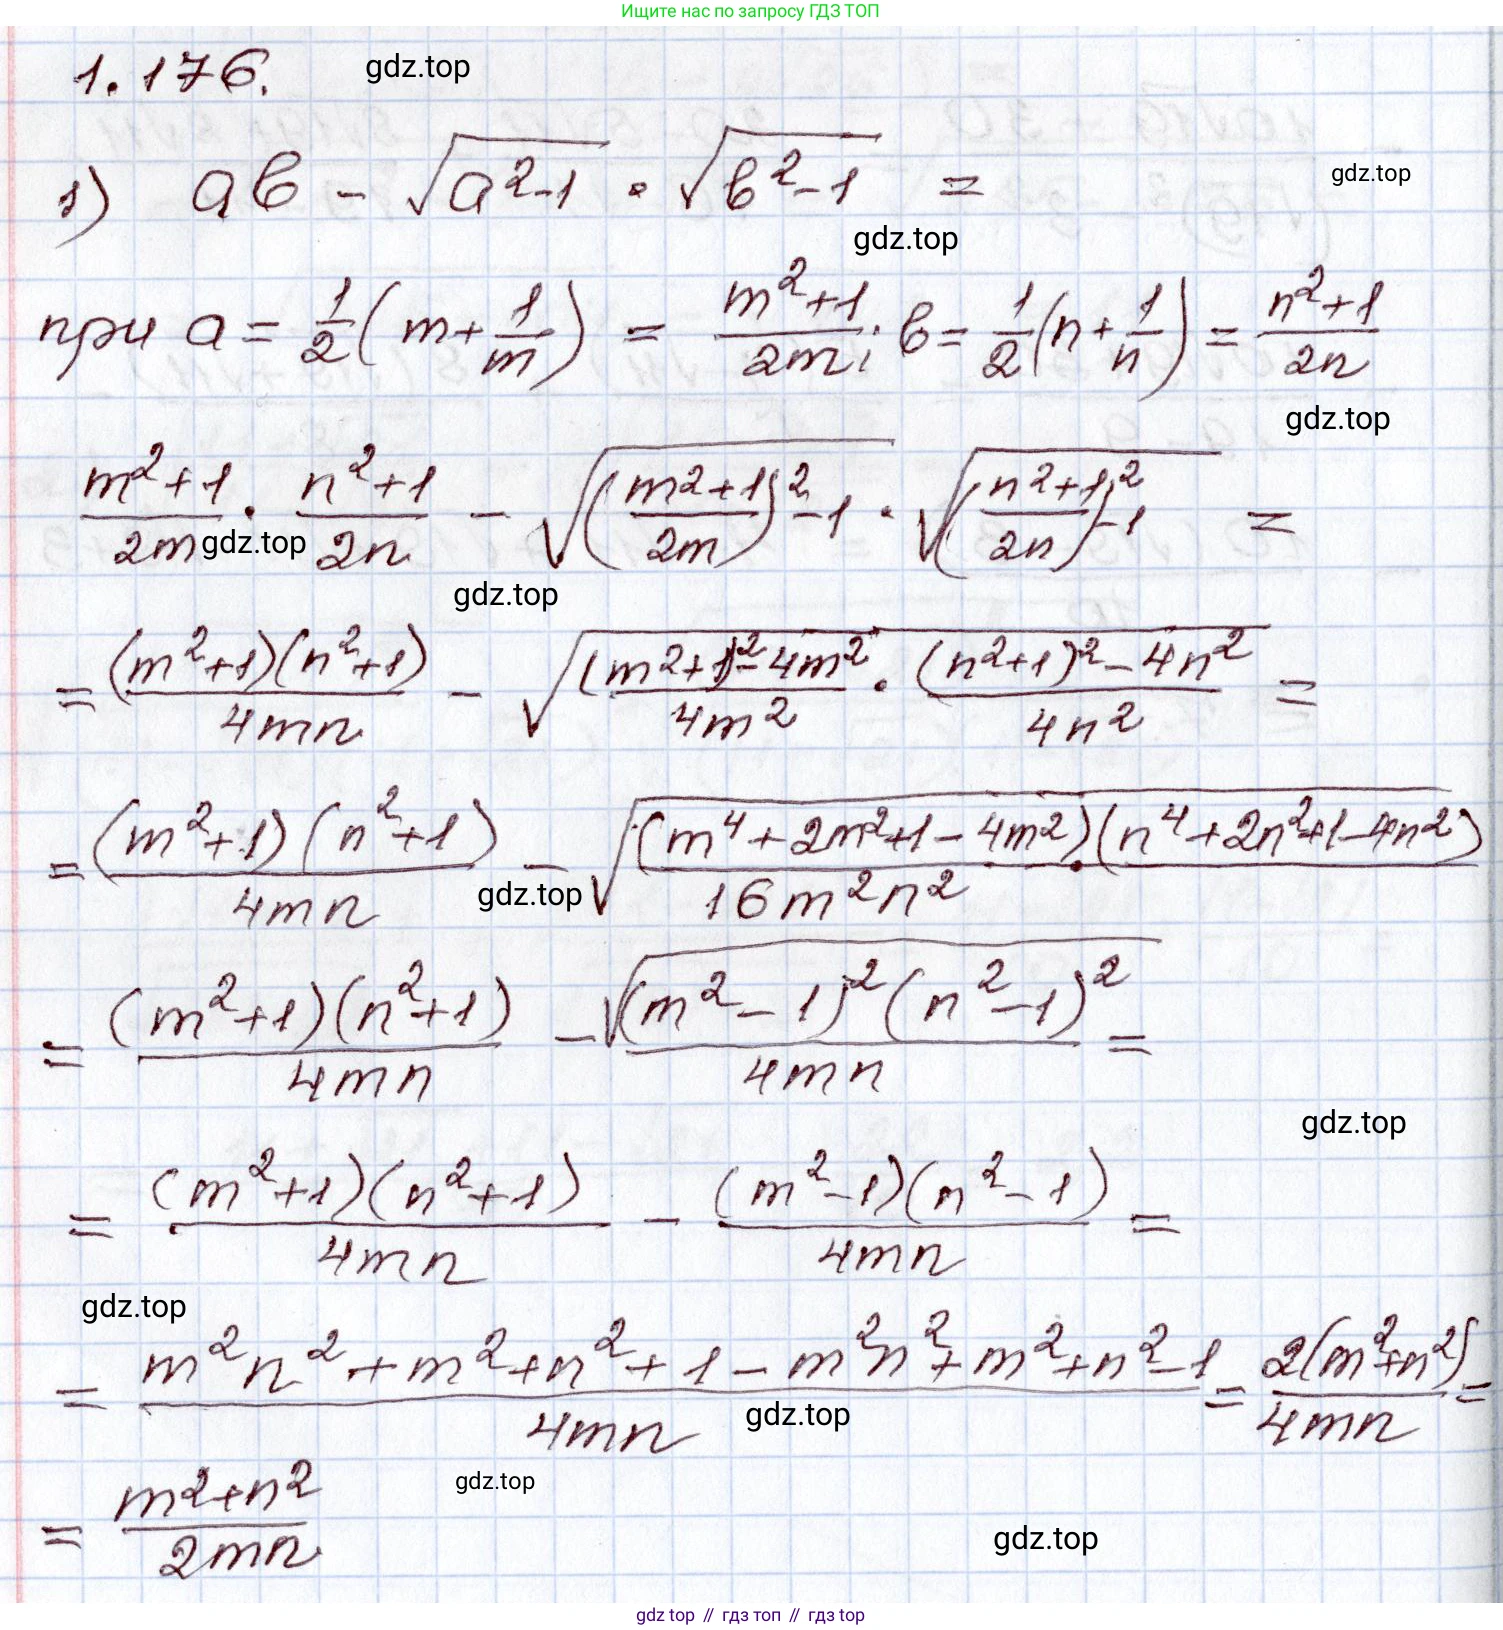 Ищите нас по запросу ГДЗ ТОП
1.176. gdz.top
1) ab - √(a²-1) · √(b²-1) = gdz.top
gdz.top
при a = 1/2 (m + 1/m) = (m²+1)/(2m); b = 1/2 (n + 1/n) = (n²+1)/(2n)
gdz.top
(m²+1)/(2m) · (n²+1)/(2n) - √(((m²+1)/(2m))² - 1) · √(((n²+1)/(2n))² - 1) =
gdz.top
gdz.top
= ((m²+1)(n²+1))/(4mn) - √(((m²+1)²-4m²)/(4m²) · ((n²+1)²-4n²)/(4n²)) =
= ((m²+1)(n²+1))/(4mn) - √(((m⁴+2m²+1-4m²)·(n⁴+2n²+1-4n²))/(16m²n²))
gdz.top
= ((m²+1)(n²+1))/(4mn) - √((m²-1)²(n²-1)²)/(4mn) =
gdz.top
= ((m²+1)(n²+1))/(4mn) - ((m²-1)(n²-1))/(4mn) =
gdz.top
= (m²n²+m²+n²+1-m²n²+m²+n²-1)/(4mn) = (2(m²+n²))/(4mn) =
gdz.top
= (m²+n²)/(2mn) gdz.top
gdz.top
gdz top // гдз топ // гдз top